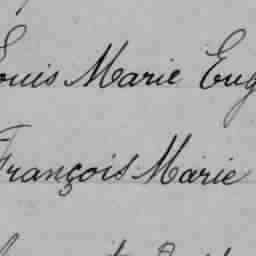 Louis Marie Eug
François Marie